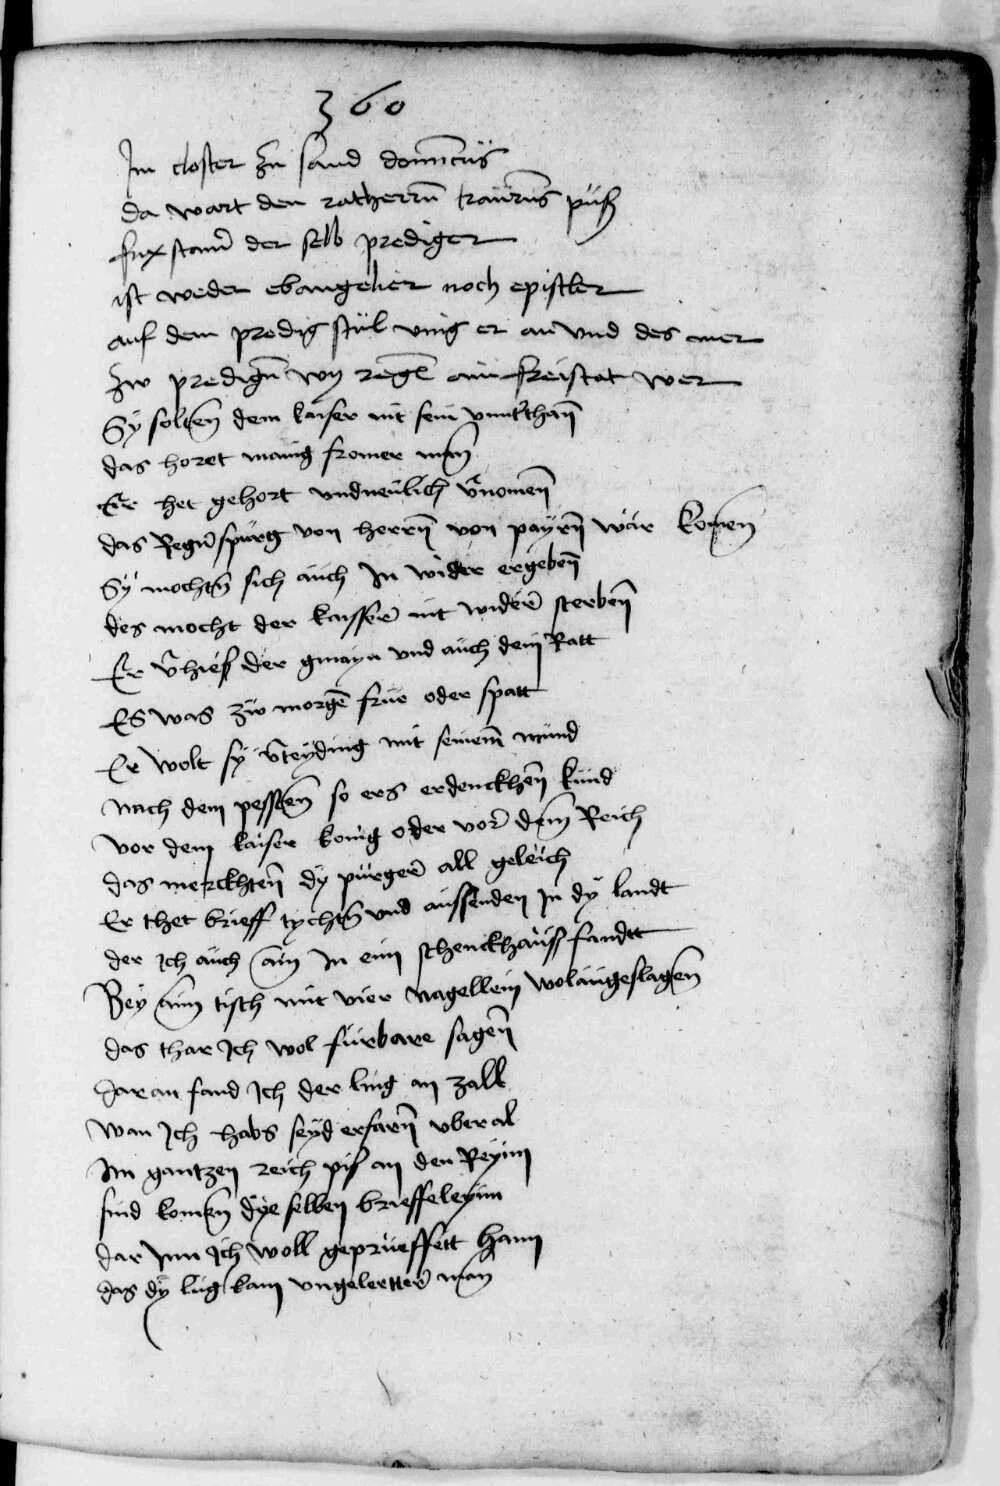 360
Im closter zu sand dominicus
da wart den ratherrn traurens pus
fux stain der selb prediger
ist weder ebangelier noch epistler
auf dem predig stul ving er an und des mer
zw predign wy regen ain freistat wer
Sy solten dem kaiser nit sein unnterthan
das horet manig fromer man
Er het gehort undneulich vernomen
das Regenspurg von herrn von payrn wär komen
Sy mochten sich auch In wider ergeben
des mocht der kaisser nit wider sterben
Er verhies der gmayn und auch dem Ratt
Es was zw morgen frue oder spatt
Er wolt sy verteyding mit seinem mund
nach dem pessten so ers erdenckhen kund
vor dem kaiser konig oder vor dem Reich
das merckhten dy purger all geleich
Er thet brieff tychten und aussenden In dy landt
der Ich auch ain In eim schenckhaus fandt
Bey aim tisch mit vier nagellein wolangeslagen
das thar Ich wol furbare sagen
daran fand Ich der lug an zall
wan Ich habs seyd erfarn uberal
Im gantzen reich pis an den Reyim
sind komen dye selben brieffeleyim
dar Inn Ich woll geprueffett hann
das dy lug kam ungelertter man